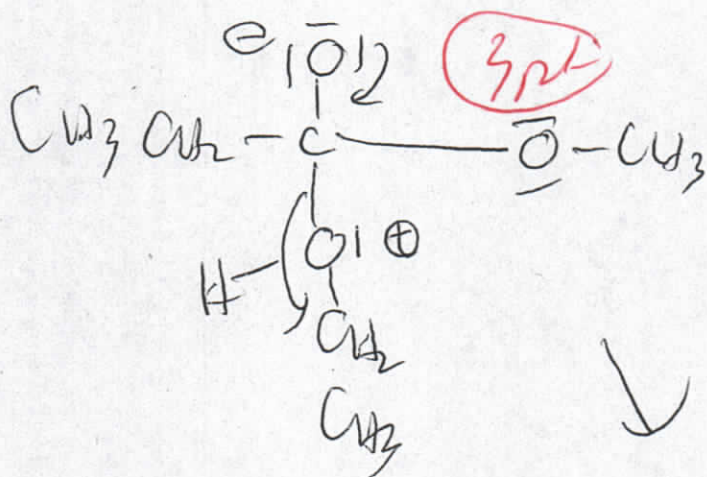 ⊖ |O|
3pt
CH3 CH2 - C - O - CH3
H - O| ⊕
CH2
CH3